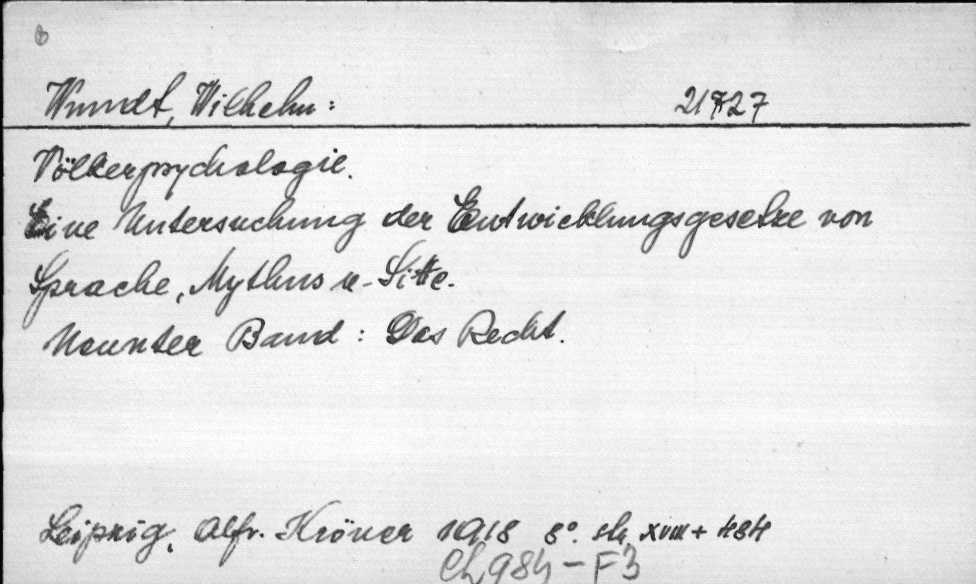 Wundt, Wilhelm: 21727
Völkerpsychologie.
Eine Untersuchung der Entwicklungsgesetze von
Sprache, Mythus u. Sitte.
Neunter Band: Das Recht.
Leipzig, Alfr. Kröner 1918 8°. str. XVIII + 484
984-F3